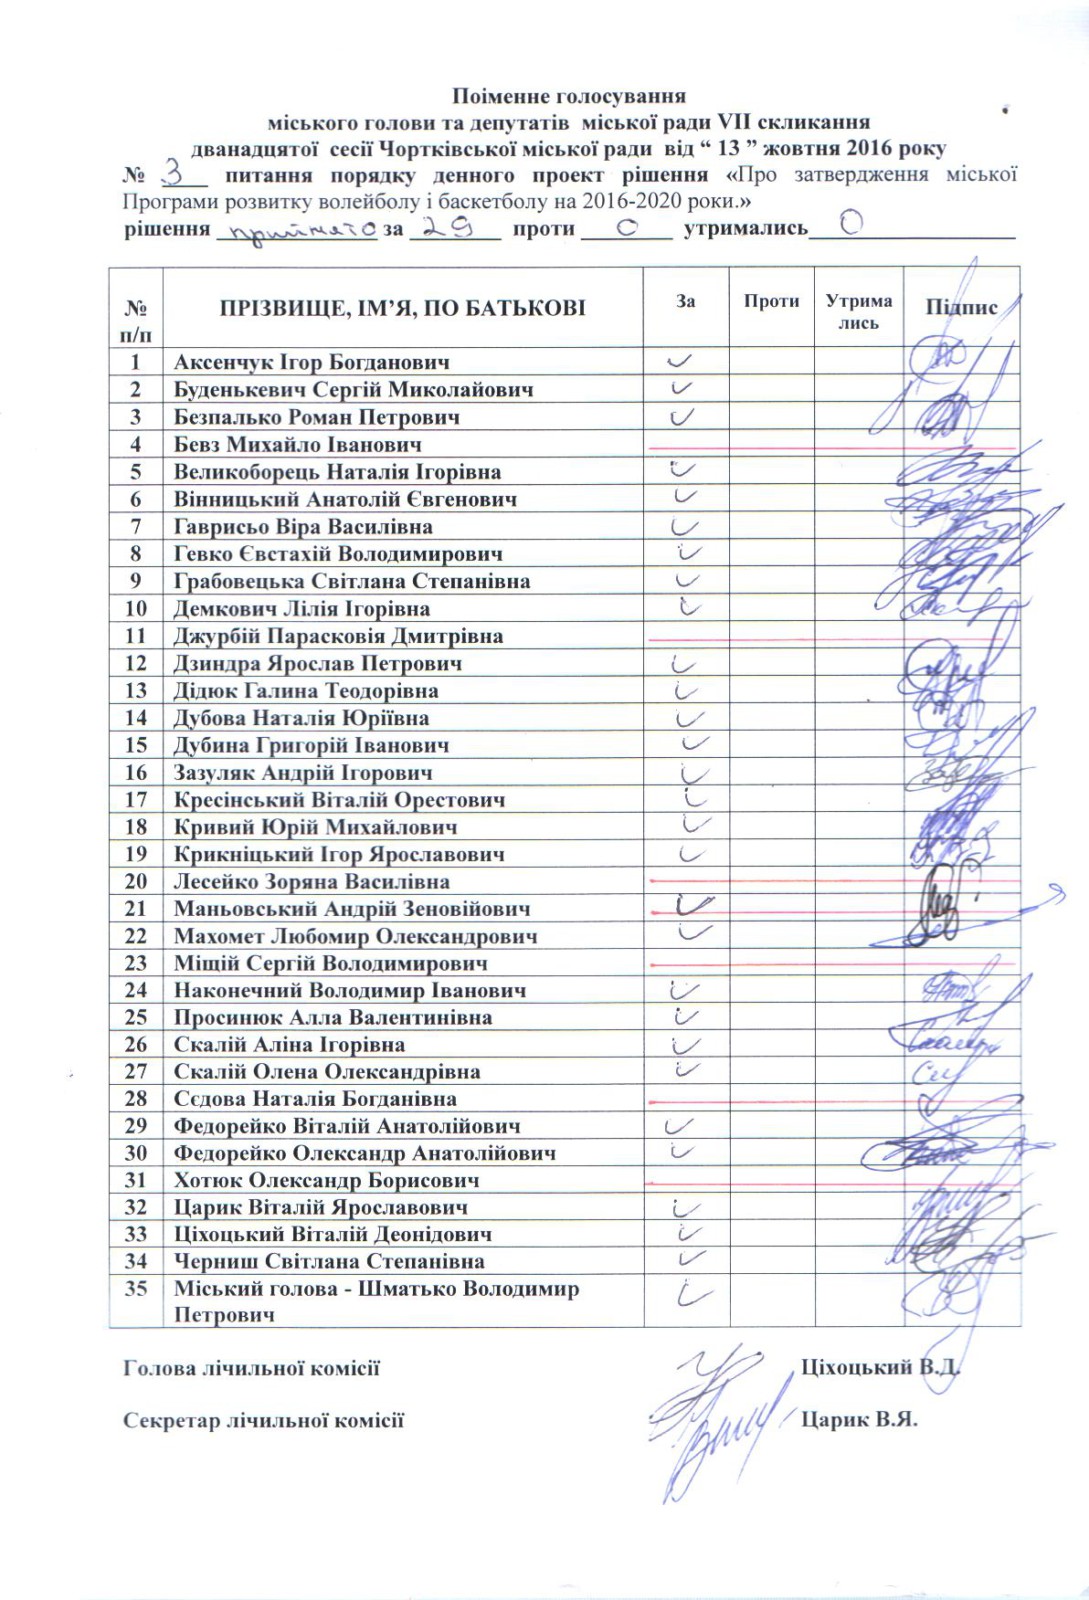 Поіменне голосування
міського голови та депутатів міської ради VII скликання
дванадцятої сесії Чортківської міської ради від “ 13 ” жовтня 2016 року
№ 3 питання порядку денного проект рішення «Про затвердження міської
Програми розвитку волейболу і баскетболу на 2016-2020 роки.»
рішення прийнято за 29 проти 0 утримались 0
№ п/п ПРІЗВИЩЕ, ІМ’Я, ПО БАТЬКОВІ За Проти Утрима лись Підпис
1 Аксенчук Ігор Богданович
2 Буденькевич Сергій Миколайович
3 Безпалько Роман Петрович
4 Бевз Михайло Іванович
5 Великоборець Наталія Ігорівна
6 Вінницький Анатолій Євгенович
7 Гаврисьо Віра Василівна
8 Гевко Євстахій Володимирович
9 Грабовецька Світлана Степанівна
10 Демкович Лілія Ігорівна
11 Джурбій Парасковія Дмитрівна
12 Дзиндра Ярослав Петрович
13 Дідюк Галина Теодорівна
14 Дубова Наталія Юріївна
15 Дубина Григорій Іванович
16 Зазуляк Андрій Ігорович
17 Кресінський Віталій Орестович
18 Кривий Юрій Михайлович
19 Крикніцький Ігор Ярославович
20 Лесейко Зоряна Василівна
21 Маньовський Андрій Зеновійович
22 Махомет Любомир Олександрович
23 Міщій Сергій Володимирович
24 Наконечний Володимир Іванович
25 Просинюк Алла Валентинівна
26 Скалій Аліна Ігорівна
27 Скалій Олена Олександрівна
28 Сєдова Наталія Богданівна
29 Федорейко Віталій Анатолійович
30 Федорейко Олександр Анатолійович
31 Хотюк Олександр Борисович
32 Царик Віталій Ярославович
33 Ціхоцький Віталій Деонідович
34 Черниш Світлана Степанівна
35 Міський голова - Шматько Володимир
Петрович
Голова лічильної комісії Ціхоцький В.Д.
Секретар лічильної комісії Царик В.Я.